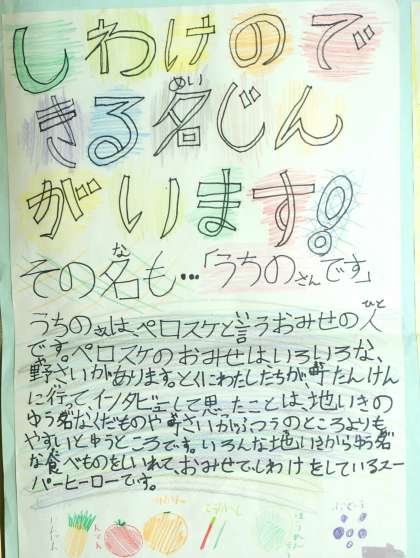 しわけので
きる名じん
がいます!
その名も…「うちのさんです」
うちのさんは、ペロスケと言うおみせの人
です。ペロスケのおみせはいろいろな、
野さいがあります。とくにわたしたちが、町たんけん
に行って、インタビューして思ったことは、地いきの
ゆう名なくだものや野さいがふつうのところよりも
やすいとゆうところです。いろんな地いきからゆう名
な食べものをしいれて、おみせでしわけをしているスー
パーヒーローです。
にんじん りんご ほうれんそう ぶどう